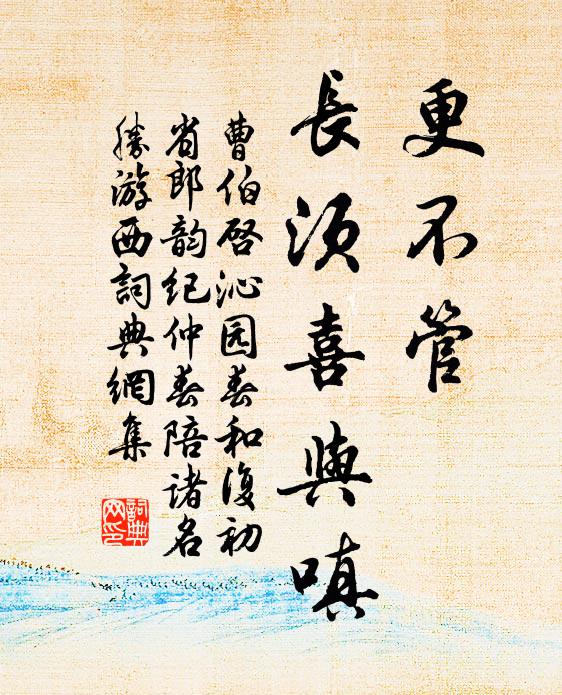 更不管
長須喜與嗔
曹伯启沁园春和復初
省郎韵纪仲春陪诸名
勝游西詞典網集
詞典
网印